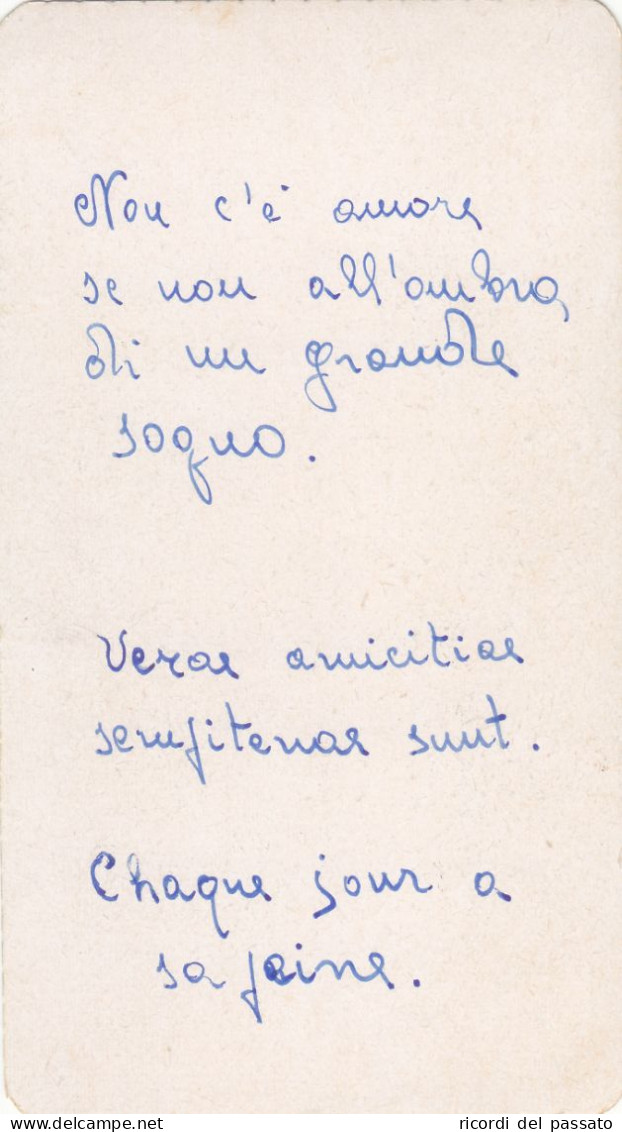 Non c'è amore
se non all'ombra
di un grande
sogno.
Verae amicitiae
sempiternae sunt.
Chaque jour a
sa peine.
delcampe.net
ricordi del passato